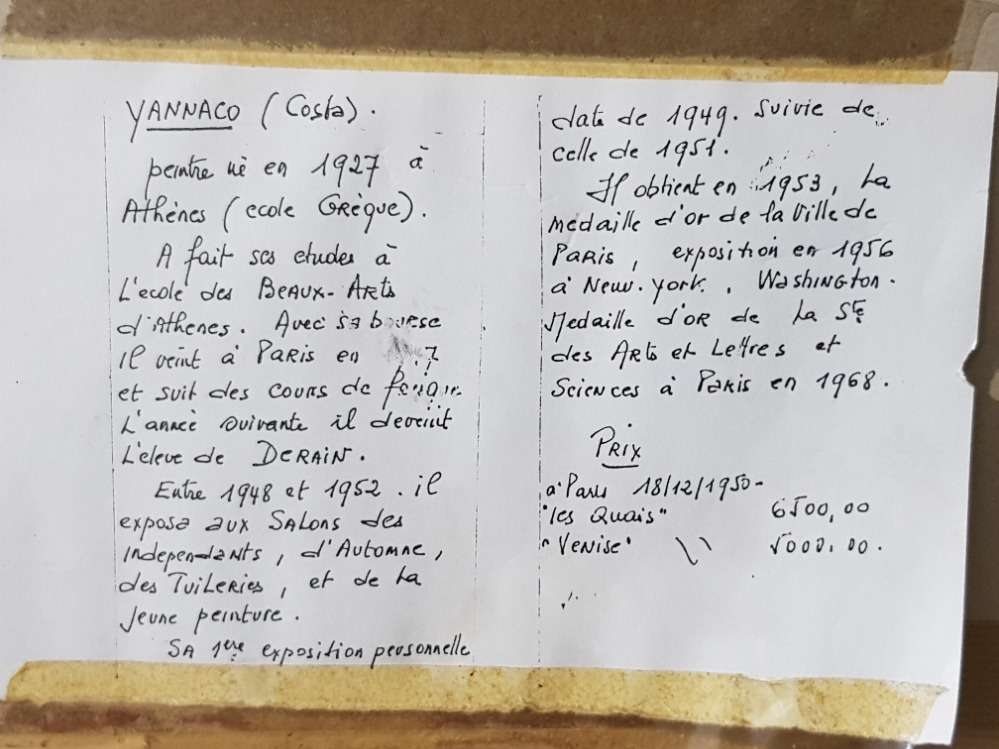 YANNACO (Costa).
peintre né en 1927 à
Athènes (ecole Grèque).
A fait ses etudes à
L'ecole des BEAUX-ARTS
d'Athenes. Avec sa bourse
il veint à PARIS en
et suit des cours de
L'année suivante il devenit
L'eleve de DERAIN.
Entre 1948 et 1952. il
exposa aux SALONS des
Independants, d'Automne,
des TuiLeries, et de La
Jeune peinture.
SA 1ère exposition personnelle
date de 1949. Suivie de
celle de 1951.
Il obtient en 1953, La
medaille d'or de la Ville de
PARIS, exposition en 1956
à New.York., WashiNGTON.
Medaille d'OR de La Sté
des ARTS et Lettres et
Sciences à PARIS en 1968.
PRIX
à Paris 18/12/1950-
"les Quais" 6500,00
"Venise" \\ 5000.00.